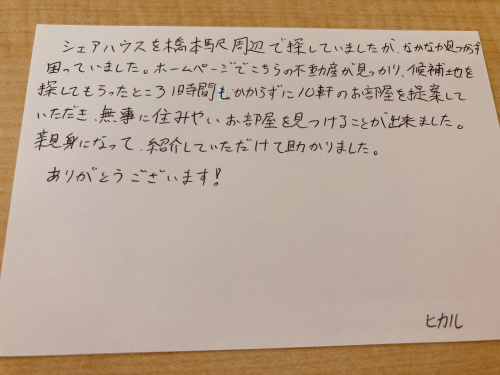 シェアハウスを橋本駅周辺で探していましたが、なかなか見つからず
困っていました。ホームページでこちらの不動産が見っかり、候補地を
探してもらったところ1時間もかからずに10軒のお部屋を提案して
いただき、無事に住みやいお部屋を見つけることが出来ました。
親身になって、紹介していただけて助かりました。
ありがとうございます!
ヒカル